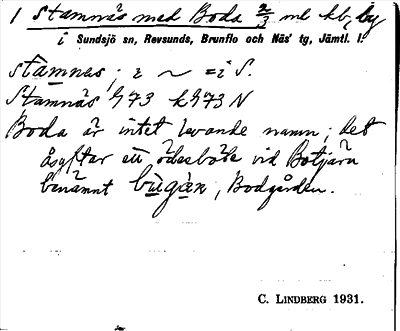 1 Stamnäs med Boda 2/3 ml kb, by
i Sundsjö sn, Revsunds, Brunflo och Näs' tg, Jämtl. l.
stamnas; i ~ = i S.
Stamnäs G 73 k G 73 N
Boda är intet levande namn; det
åsyftar ett ödesböle vid Botjärn
benämnt bùgàn, Bodgården.
C. LINDBERG 1931.